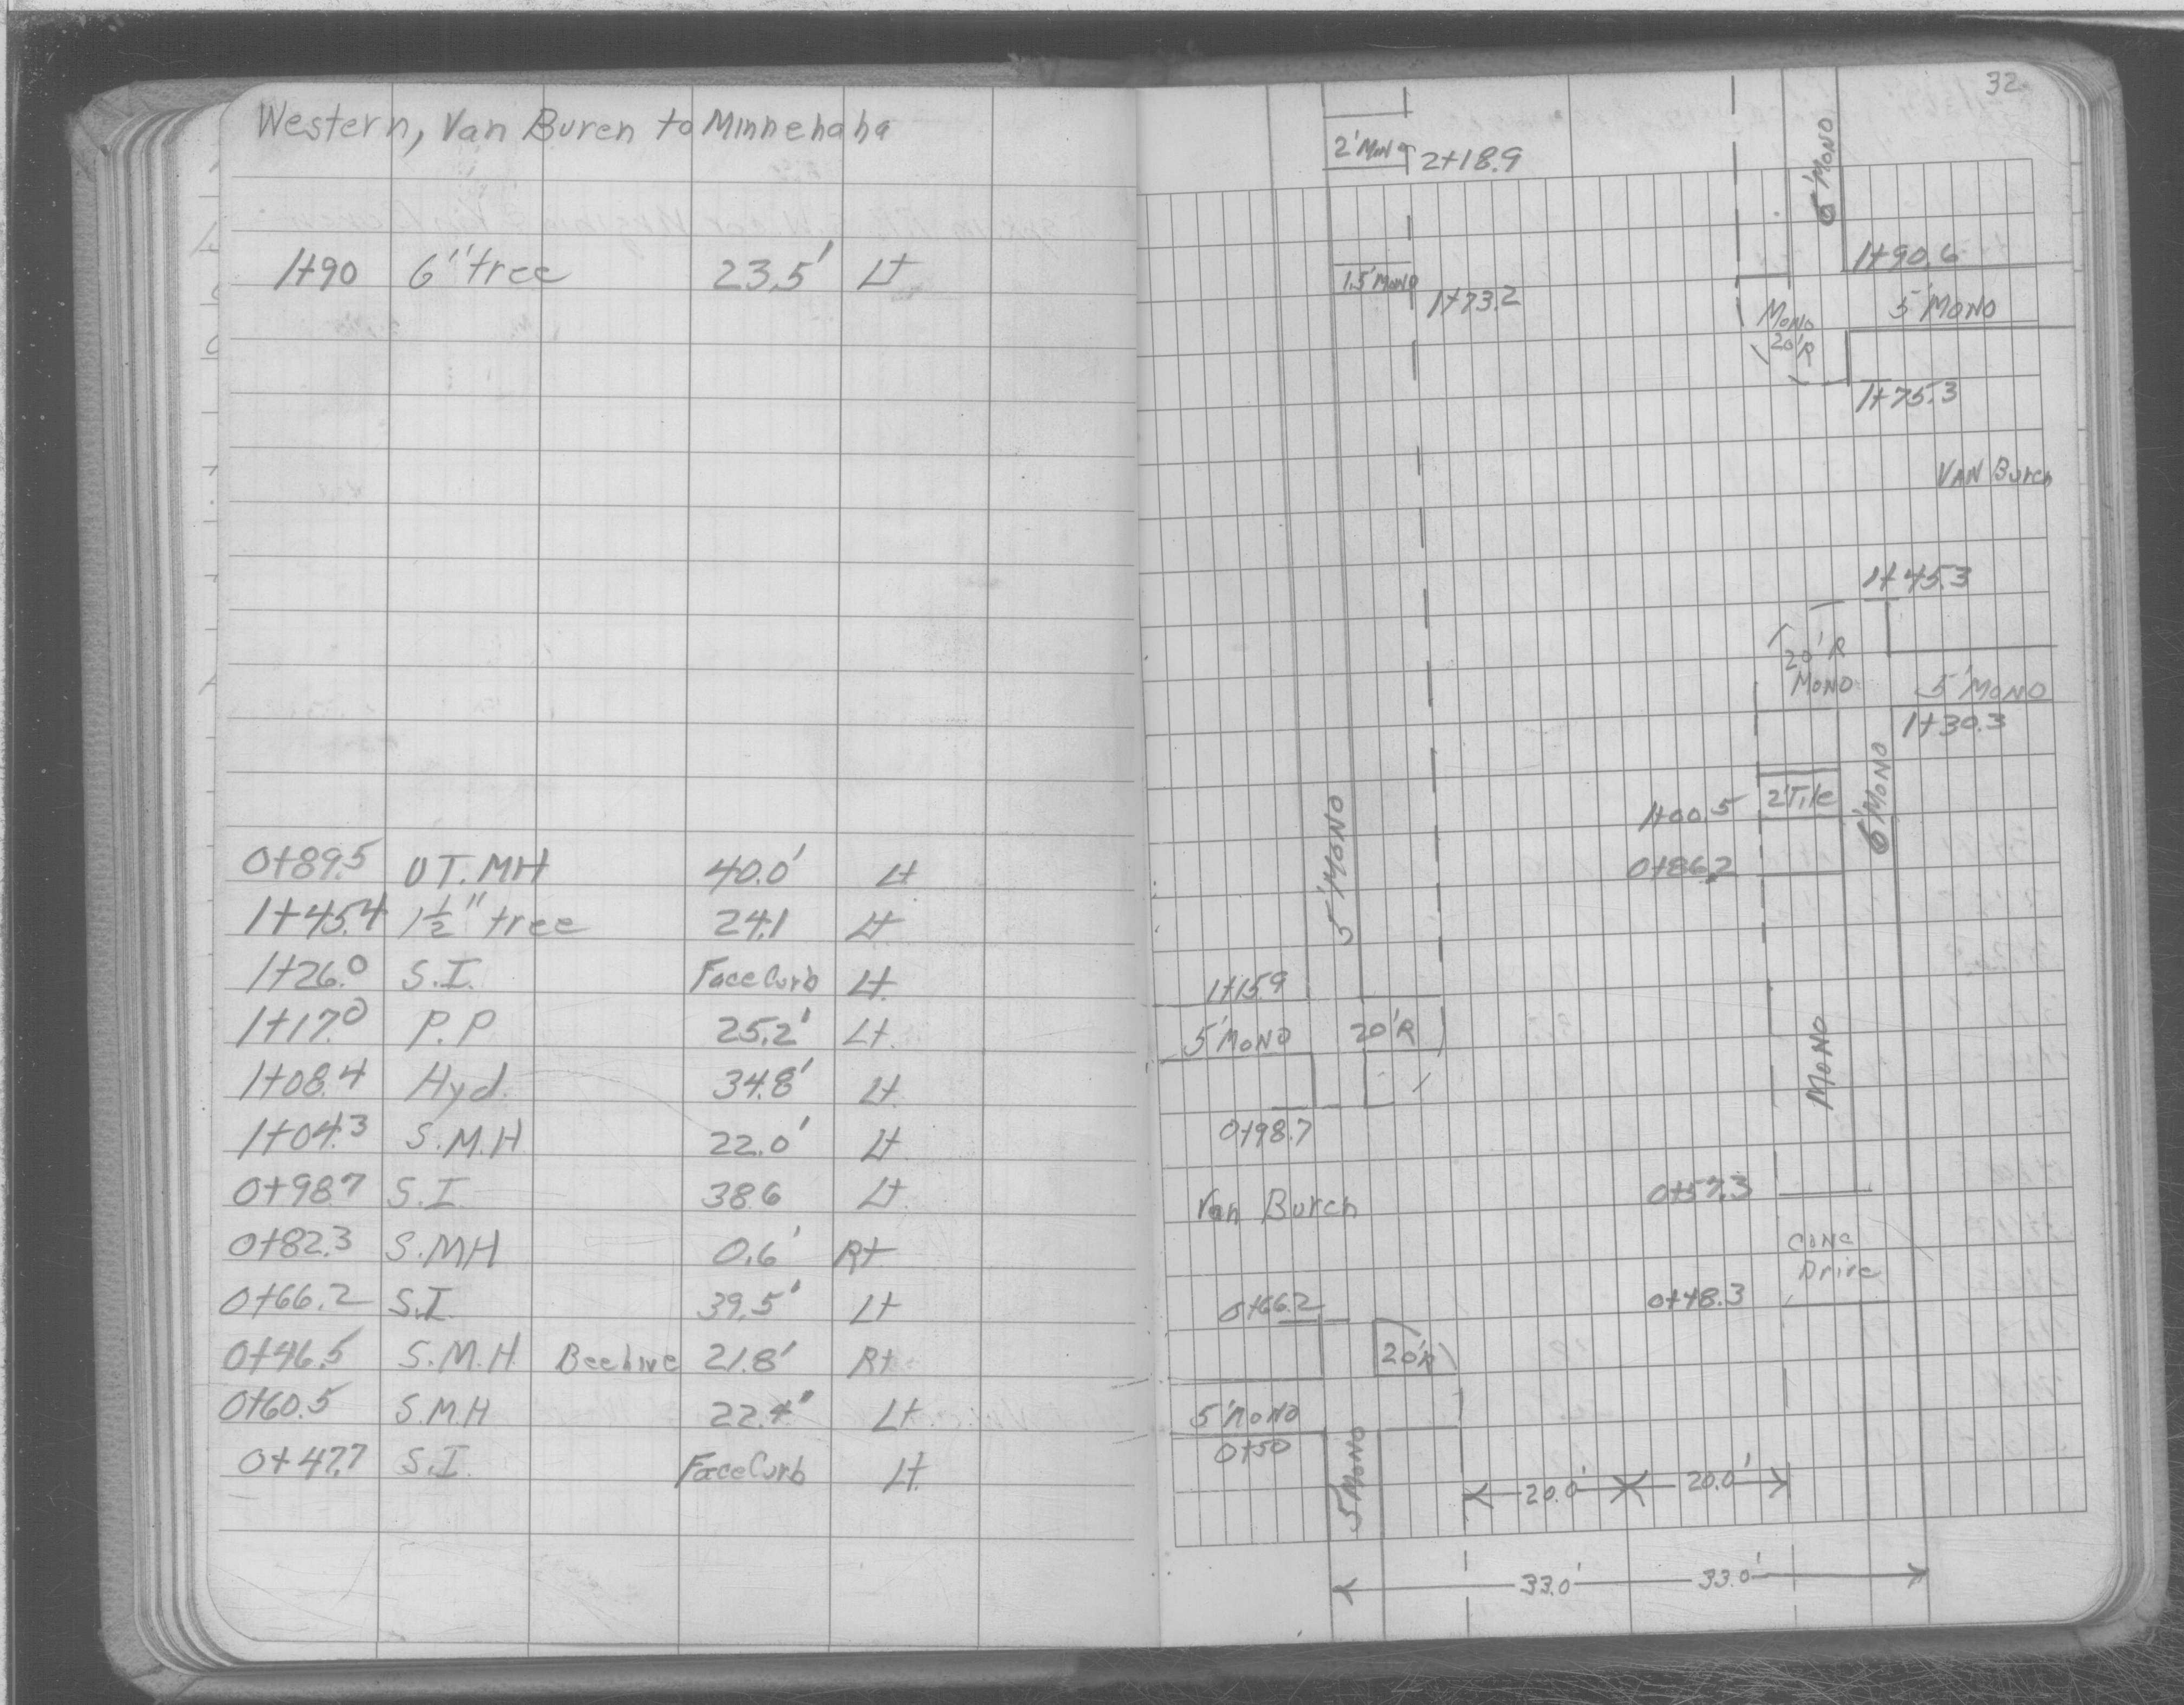 Western, Van Buren to Minnehaha
1+90 6" tree 23.5' Lt
0+89.5 U T. MH 40.0' Lt
1+45.4 1½" tree 24.1 Lt
1+26.0 S.I. Face Curb Lt.
1+17.0 P.P 25.2' Lt.
1+08.4 Hyd. 34.8' Lt.
1+04.3 S.M.H. 22.0' Lt.
0+98.7 S.I 38.6 Lt.
0+82.3 S.MH 0.6' Rt
0+66.2 S.I 39.5' Lt
0+46.5 S.M.H. Beehive 21.8' Rt.
0+60.5 S.M.H Lt.
0+47.7 S.I. Face Curb Lt.
32
2' MONO 2+18.9
6' MONO
1+90.6
1.5' MONO 1+73.2
5' MONO
MONO
20' R
1+75.3
VAN Buren
1+45.3
20' R
MONO
5' MONO
1+30.3
1+00.5 2' Tile
6' MONO
0+86.2
5' MONO
1+15.9
5' MONO 20' R
MONO
0+98.7
Van Buren
0+57.3
Conc
Drive
0+66.2
0+48.3
20' R
5' MONO
0+50
5' MONO
20.0' 20.0'
33.0' 33.0'